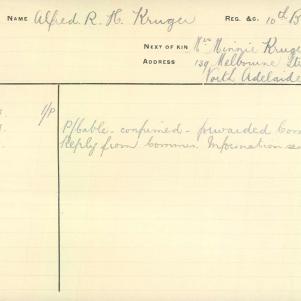 NAME Alfred. R. H. Kruger REG. &C. 10th B
NEXT OF KIN Mrs Minnie Kruge
ADDRESS 139 Melbourne Str
North Adelaide
1/P P/Cable - confirmed - forwarded Com
Reply from Commrs. Information se